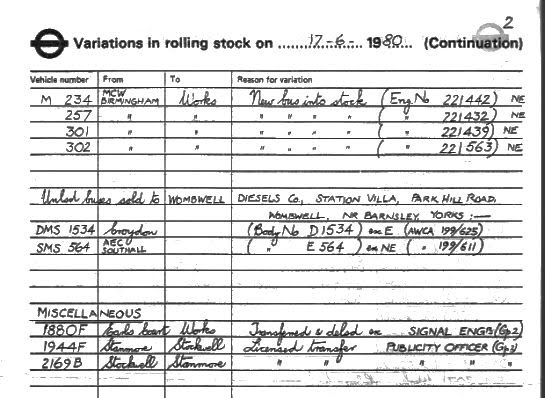 2
Variations in rolling stock on 17-6- 1980 (Continuation)
Vehicle number From To Reason for variation
M 234 MCW BIRMINGHAM Works New bus into stock (Eng. No 221442) NE
257 " " " " " " ( " 221432) NE
301 " " " " " " ( " 221439) NE
302 " " " " " " ( " 221563) NE
Unlicd buses sold to WOMBWELL DIESELS Co, STATION VILLA, PARK HILL ROAD,
WOMBWELL, NR BARNSLEY, YORKS :—
DMS 1534 Croydon (Body No D1534) ex E (AWCA 199/625)
SMS 564 AEC SOUTHALL ( " E 564) ex NE ( " 199/611)
MISCELLANEOUS
1880F Earls Court Works Transferred & delsd ex SIGNAL ENGR (Gp2)
1944F Stanmore Stockwell Licensed transfer PUBLICITY OFFICER (Gp3)
2169B Stockwell Stanmore " " " " "